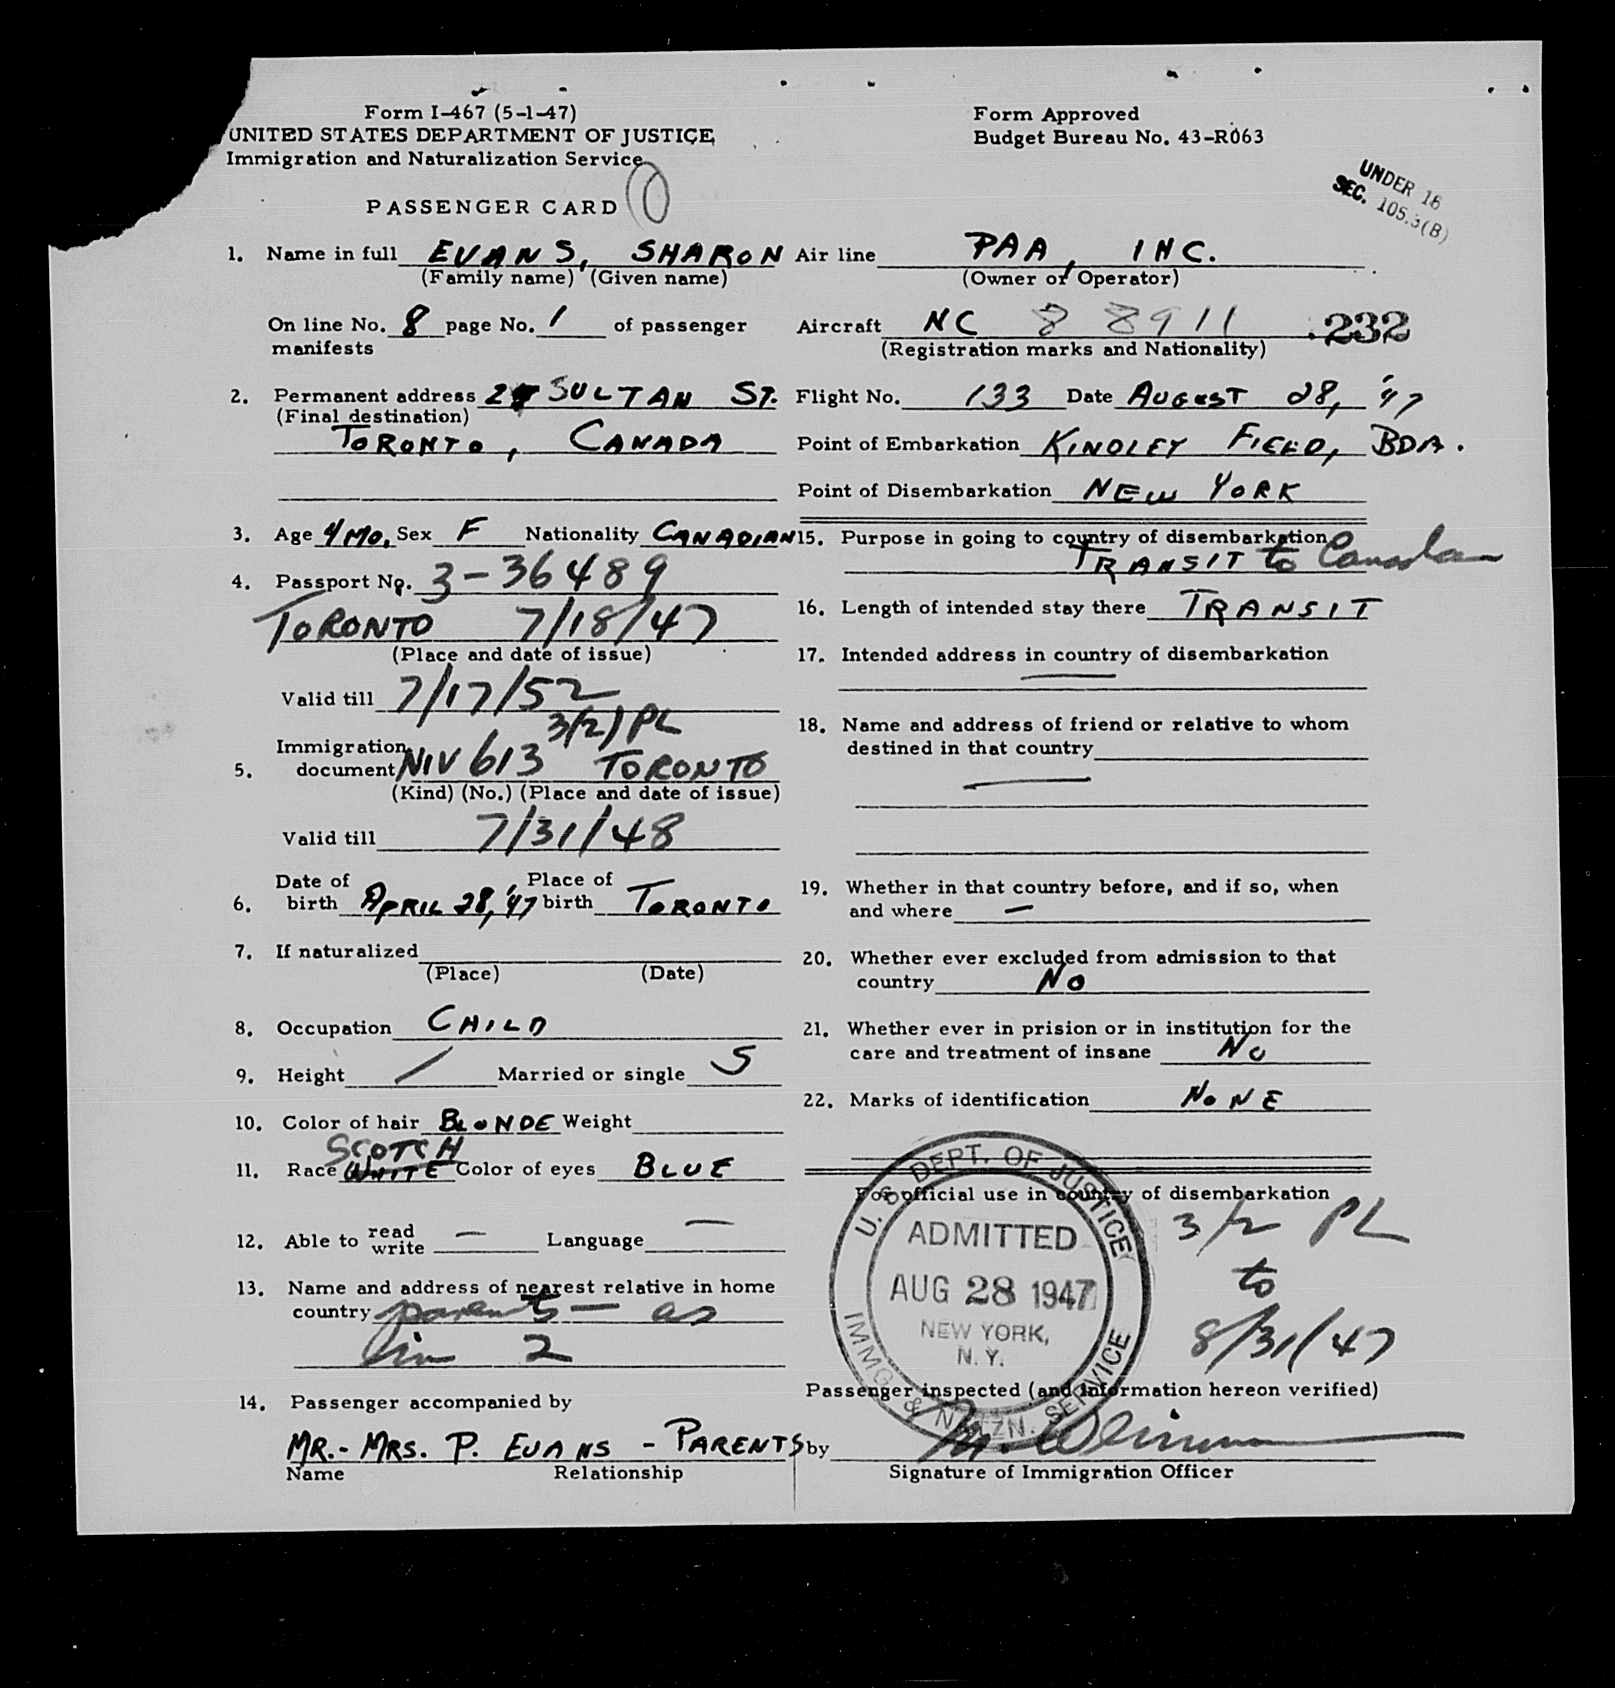 Form I-467 (5-1-47)
UNITED STATES DEPARTMENT OF JUSTICE
Immigration and Naturalization Service
Form Approved
Budget Bureau No. 43-R063
UNDER 16
SEC. 105.3(B)
PASSENGER CARD
1. Name in full EVANS, SHARON
(Family name) (Given name)
On line No. 8 page No. 1 of passenger
manifests
2. Permanent address SULTAN ST.
(Final destination)
TORONTO, CANADA
3. Age 4 MO. Sex F Nationality CANADIAN
4. Passport No. 3-36489
TORONTO 7/18/47
(Place and date of issue)
Valid till 7/17/52
3(2) PL
Immigration
5. document NIV 613 TORONTO
(Kind) (No.) (Place and date of issue)
Valid till 7/31/48
Date of Place of
6. birth APRIL 28, '47 birth TORONTO
7. If naturalized
(Place) (Date)
8. Occupation CHILD
9. Height / Married or single S
10. Color of hair BLONDE Weight
SCOTCH
11. Race WHITE Color of eyes BLUE
12. Able to read write — Language —
13. Name and address of nearest relative in home
country parents — as
line 2
14. Passenger accompanied by
MR. - MRS. P. EVANS - PARENTS
Name Relationship
Air line PAA, INC.
(Owner or Operator)
Aircraft NC 88911 232
(Registration marks and Nationality)
Flight No. 133 Date AUGUST 28, '47
Point of Embarkation KINDLEY FIELD, BDA.
Point of Disembarkation NEW YORK
15. Purpose in going to country of disembarkation
TRANSIT to Canada
16. Length of intended stay there TRANSIT
17. Intended address in country of disembarkation
—
18. Name and address of friend or relative to whom
destined in that country
—
19. Whether in that country before, and if so, when
and where —
20. Whether ever excluded from admission to that
country NO
21. Whether ever in prision or in institution for the
care and treatment of insane NO
22. Marks of identification NONE
For official use in country of disembarkation
3/2 PL
to
8/31/47
U. S. DEPT. OF JUSTICE
ADMITTED
AUG 28 1947
NEW YORK,
N. Y.
IMMG. & NATZN. SERVICE
Passenger inspected (and information hereon verified)
by
Signature of Immigration Officer